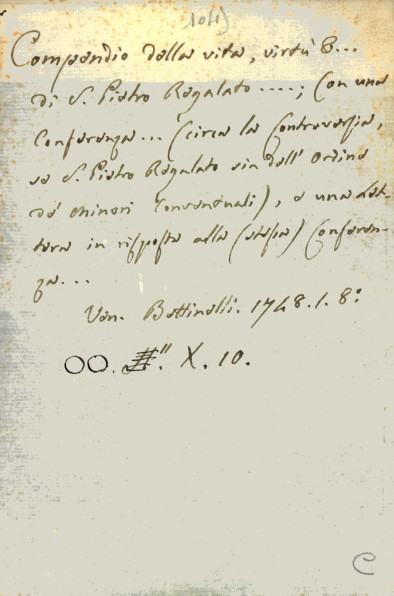 104)
Compendio della vita, virtù &...
di S. Pietro Regalato ....; Con una
Conferenza... (circa la Controversia,
se S. Pietro Regalato sia dell' Ordine
de' Minori Conventuali), e una Let-
tera in risposta alla (stessa) Conferen-
za...
Ven. Bettinelli. 1748. 1. 8:
OO. X. 10.
C